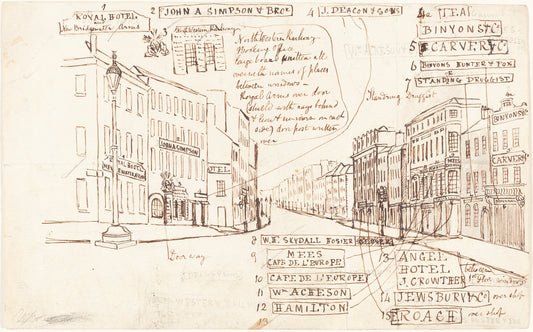 1
ROYAL HOTEL
and
New Bridgewater Arms
2 JOHN A SIMPSON & BROR
3
North Western Railway
North Western Railway
Booking office
large board written all
over with names of places
between windows.
Royal Arms over door
shield with rays behind
& lion & unicorn on each
side) door post written
over
4 J. DEACON & SONS
4 TEA
BINYONS & Co
5 CARVER & Co
6 BINYONS HUNTER & FOX
STANDRING DRUGGIST
Standring Druggist
HOTEL
JOHN A SIMPSON
HOTEL
BINYONS
CARVER
MEES
Doorway
8 W. H. SKYDALL HOSIER GLOVER
9 MEES
CAFE DE L'EUROPE
10 CAFE DE L'EUROPE
11 Wm ACHESON
12 HAMILTON
13
13 ANGEL
HOTEL
J. CROWTHER
between
1st floor windows
14 JEWSBURY & Co over shop
15 ROACH over shop